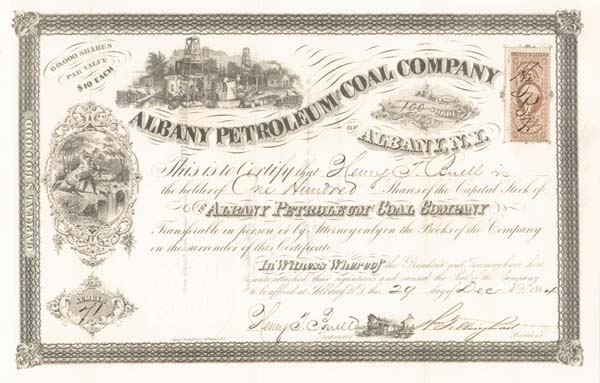 60,000 SHARES
PAR VALUE
$10 EACH
ALBANY PETROLEUM & COAL COMPANY
100 SHARES
OF ALBANY, N.Y.
This is to Certify that Henry T. Buell is
the holder of One Hundred Shares of the Capital Stock of
THE ALBANY PETROLEUM COAL COMPANY
Transferable in person or by Attorney only on the Books of the Company
on the surrender of this Certificate.
In Witness Whereof the President and Treasurer have here
unto attached their signatures and caused the Seal of the Company
to be affixed at Albany N.Y. this 29 day of Dec A.D. 1864
CAPITAL $
NUMBER
77
Henry T. Buell
Treasurer
President